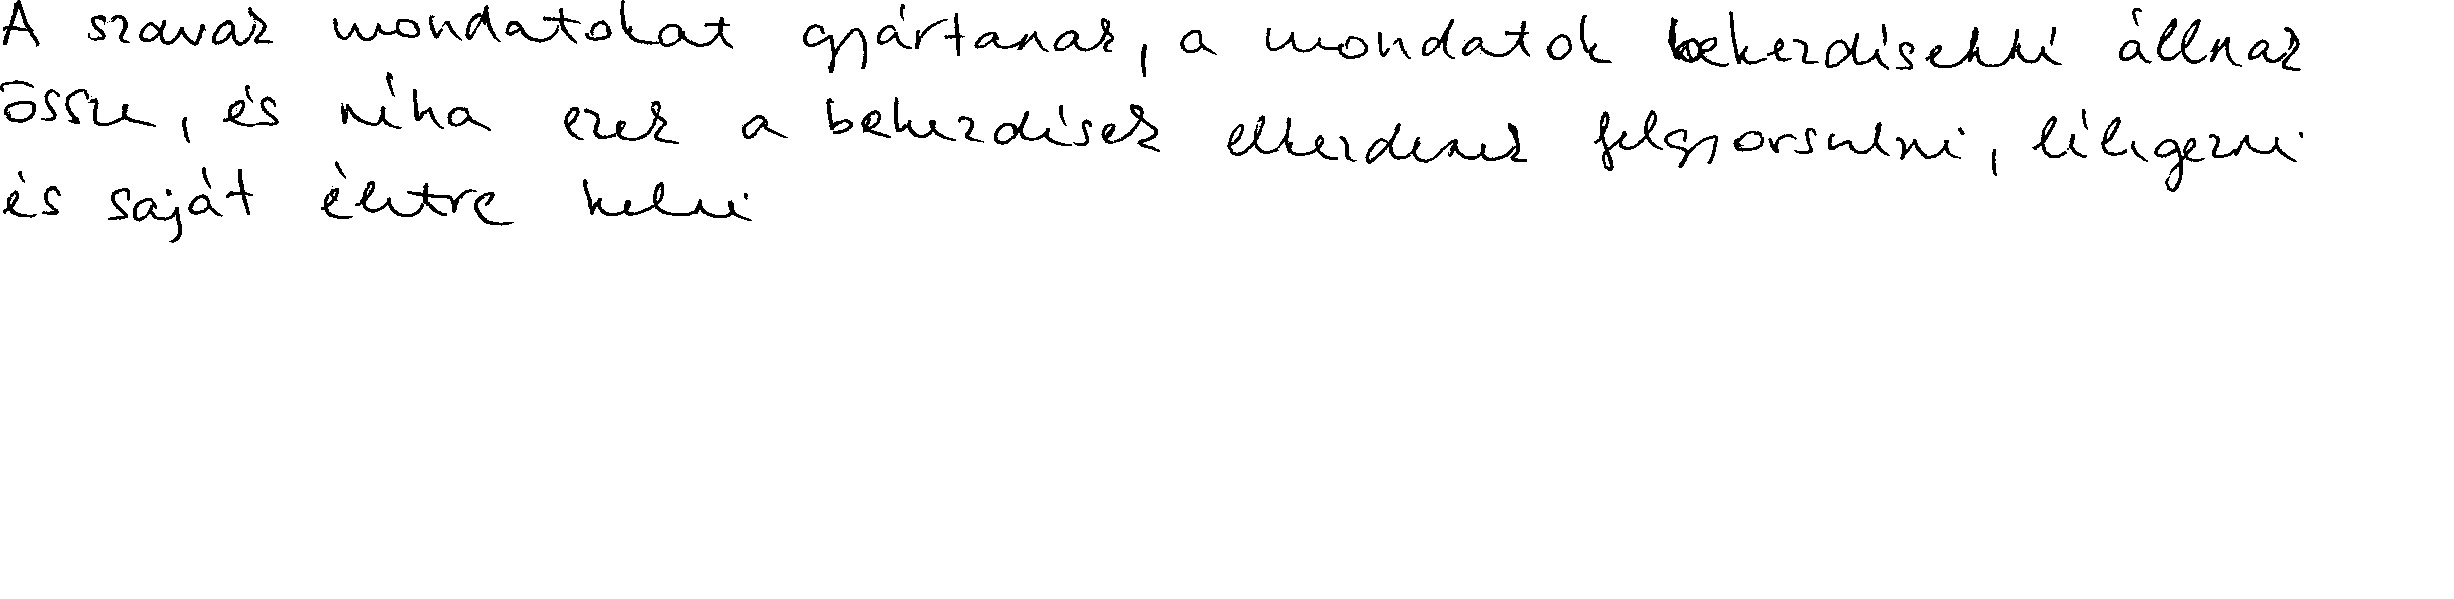 A szavak mondatokat gyártanak, a mondatok bekezdésekké állnak
össze, és néha ezek a bekezdések elkezdenek felgyorsulni, lélegezni
és saját életre kelni